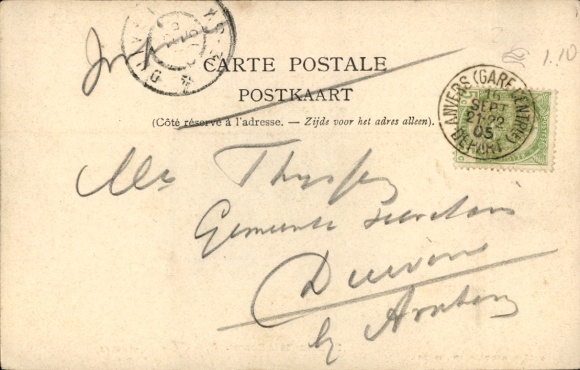 CARTE POSTALE
POSTKAART
(Côté réservé à l'adresse. — Zijde voor het adres alleen).
1.10
ANVERS (GARE CENTRALE)
16
SEPT
21-22
05
DEPART
Gemeente Secretaris
Duiven
by Arnhem